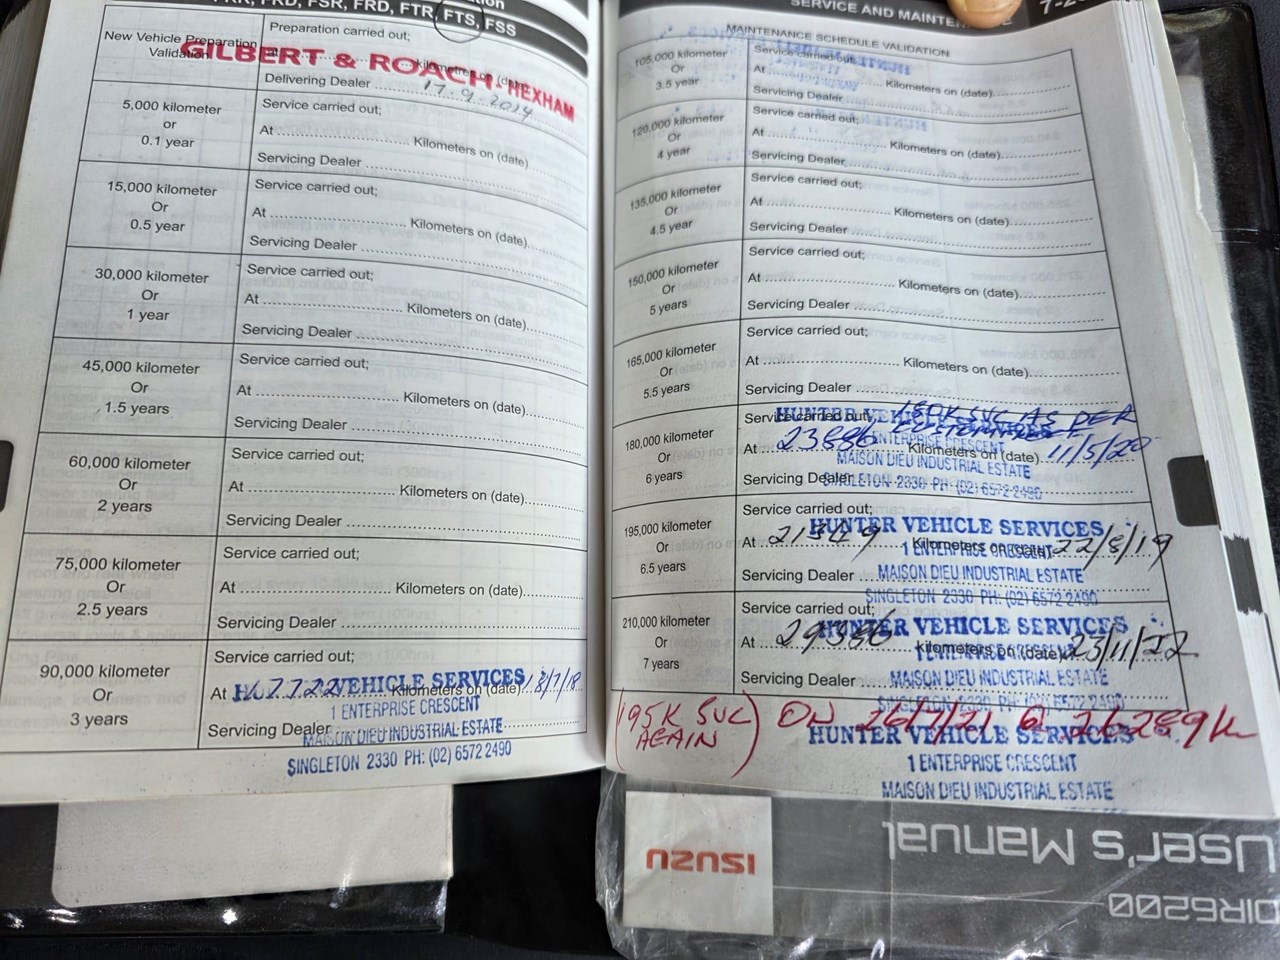 FRD, FSR, FRD, FTR, FTS, FSS
New Vehicle Preparation
Validation
Preparation carried out;
GILBERT & ROACH - HEXHAM
Kilometres on (date)
Delivering Dealer
17.9.2014
5,000 kilometer
or
0.1 year
Service carried out;
At Kilometers on (date)
Servicing Dealer
15,000 kilometer
Or
0.5 year
Service carried out;
At Kilometers on (date)
Servicing Dealer
30,000 kilometer
Or
1 year
Service carried out;
At Kilometers on (date)
Servicing Dealer
45,000 kilometer
Or
1.5 years
Service carried out;
At Kilometers on (date)
Servicing Dealer
60,000 kilometer
Or
2 years
Service carried out;
At Kilometers on (date)
Servicing Dealer
75,000 kilometer
Or
2.5 years
Service carried out;
At Kilometers on (date)
Servicing Dealer
90,000 kilometer
Or
3 years
Service carried out;
VEHICLE SERVICES
At Kilometers on (date) /7/18
1 ENTERPRISE CRESCENT
Servicing Dealer
MAISON DIEU INDUSTRIAL ESTATE
SINGLETON 2330 PH: (02) 6572 2490
SERVICE AND
MAINTENANCE SCHEDULE VALIDATION
105,000 kilometer
Or
3.5 year
Service carried out;
At Kilometers on (date)
Servicing Dealer
120,000 kilometer
Or
4 year
Service carried out;
At Kilometers on (date)
Servicing Dealer
135,000 kilometer
Or
4.5 year
Service carried out;
At Kilometers on (date)
Servicing Dealer
150,000 kilometer
Or
5 years
Service carried out;
At Kilometers on (date)
Servicing Dealer
165,000 kilometer
Or
5.5 years
Service carried out;
At Kilometers on (date)
Servicing Dealer
180,000 kilometer
Or
6 years
Service carried out; 180K SVC AS PER
HUNTER VEHICLE SERVICES
At 23886 Kilometers on (date) 11/5/20
ENTERPRISE CRESCENT
MAISON DIEU INDUSTRIAL ESTATE
Servicing Dealer
SINGLETON 2330 PH: (02) 6572 2490
195,000 kilometer
Or
6.5 years
Service carried out;
HUNTER VEHICLE SERVICES
At Kilometers on (date) 22/8/19
1 ENTERPRISE CRESCENT
Servicing Dealer
MAISON DIEU INDUSTRIAL ESTATE
SINGLETON 2330 PH: (02) 6572 2490
210,000 kilometer
Or
7 years
Service carried out;
HUNTER VEHICLE SERVICES
At Kilometers on (date) 23/11/22
1 ENTERPRISE CRESCENT
Servicing Dealer
MAISON DIEU INDUSTRIAL ESTATE
SINGLETON 2330 PH: (02) 6572 2490
(195K SVC AGAIN) ON 26/7/21 @ 26289 K
HUNTER VEHICLE SERVICES
1 ENTERPRISE CRESCENT
MAISON DIEU INDUSTRIAL ESTATE
ISUZU
User's Manual
DIR6200